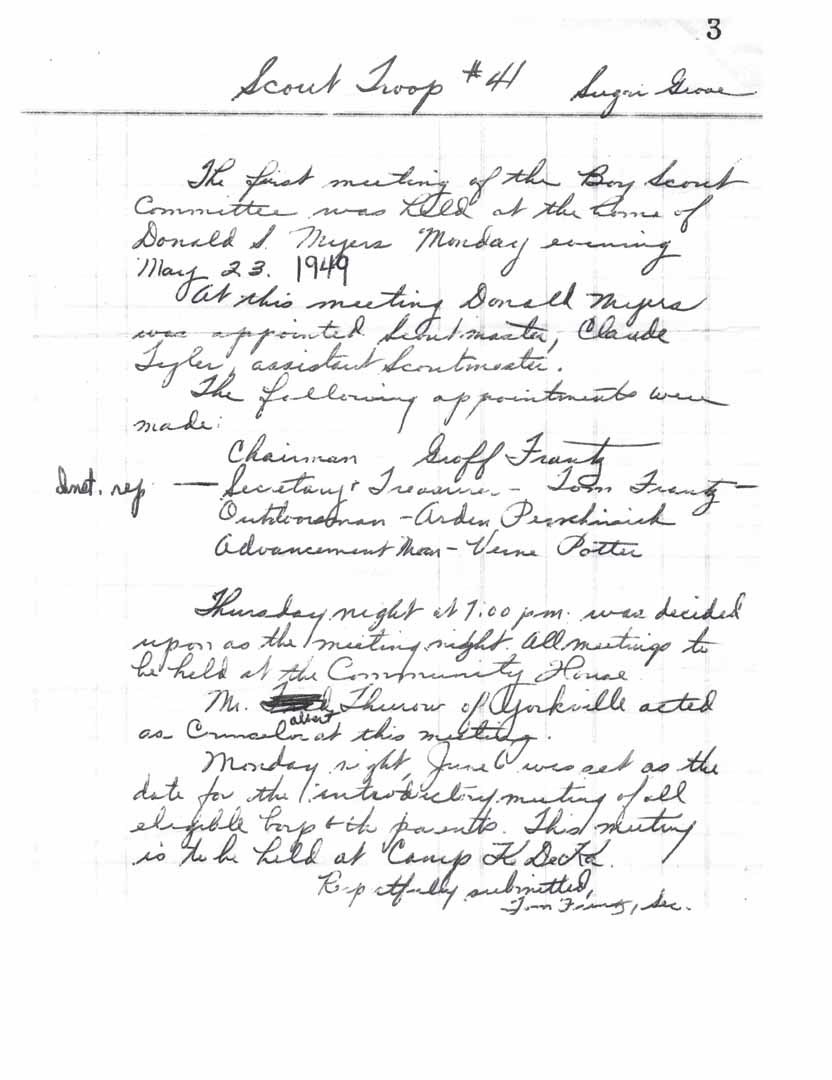 3
Scout Troop #41 Sugar Grove
The first meeting of the Boy Scout
Committee was held at the home of
Donald S. Myers Monday evening
May 23. 1949
At this meeting Donald Myers
was appointed Scoutmaster, Claude
Tyler, assistant Scoutmaster.
The following appointments were
made:
Chairman Groff Frantz
Inst. rep. — Secretary & Treasurer - Tom Frantz —
Outdoorsman - Arden
Advancement Man - Verne Potter
Thursday night at 7:00 p.m. was decided
upon as the meeting night. All meetings to
be held at the Community House.
Mr. Thurow of Yorkville acted
albert
as Counselor at this meeting.
Monday night, June 6 was set as the
date for the introductory meeting of all
eligible boys & th parents. This meeting
is to be held at Camp
Respectfully submitted,
Tom Frantz, Sec.